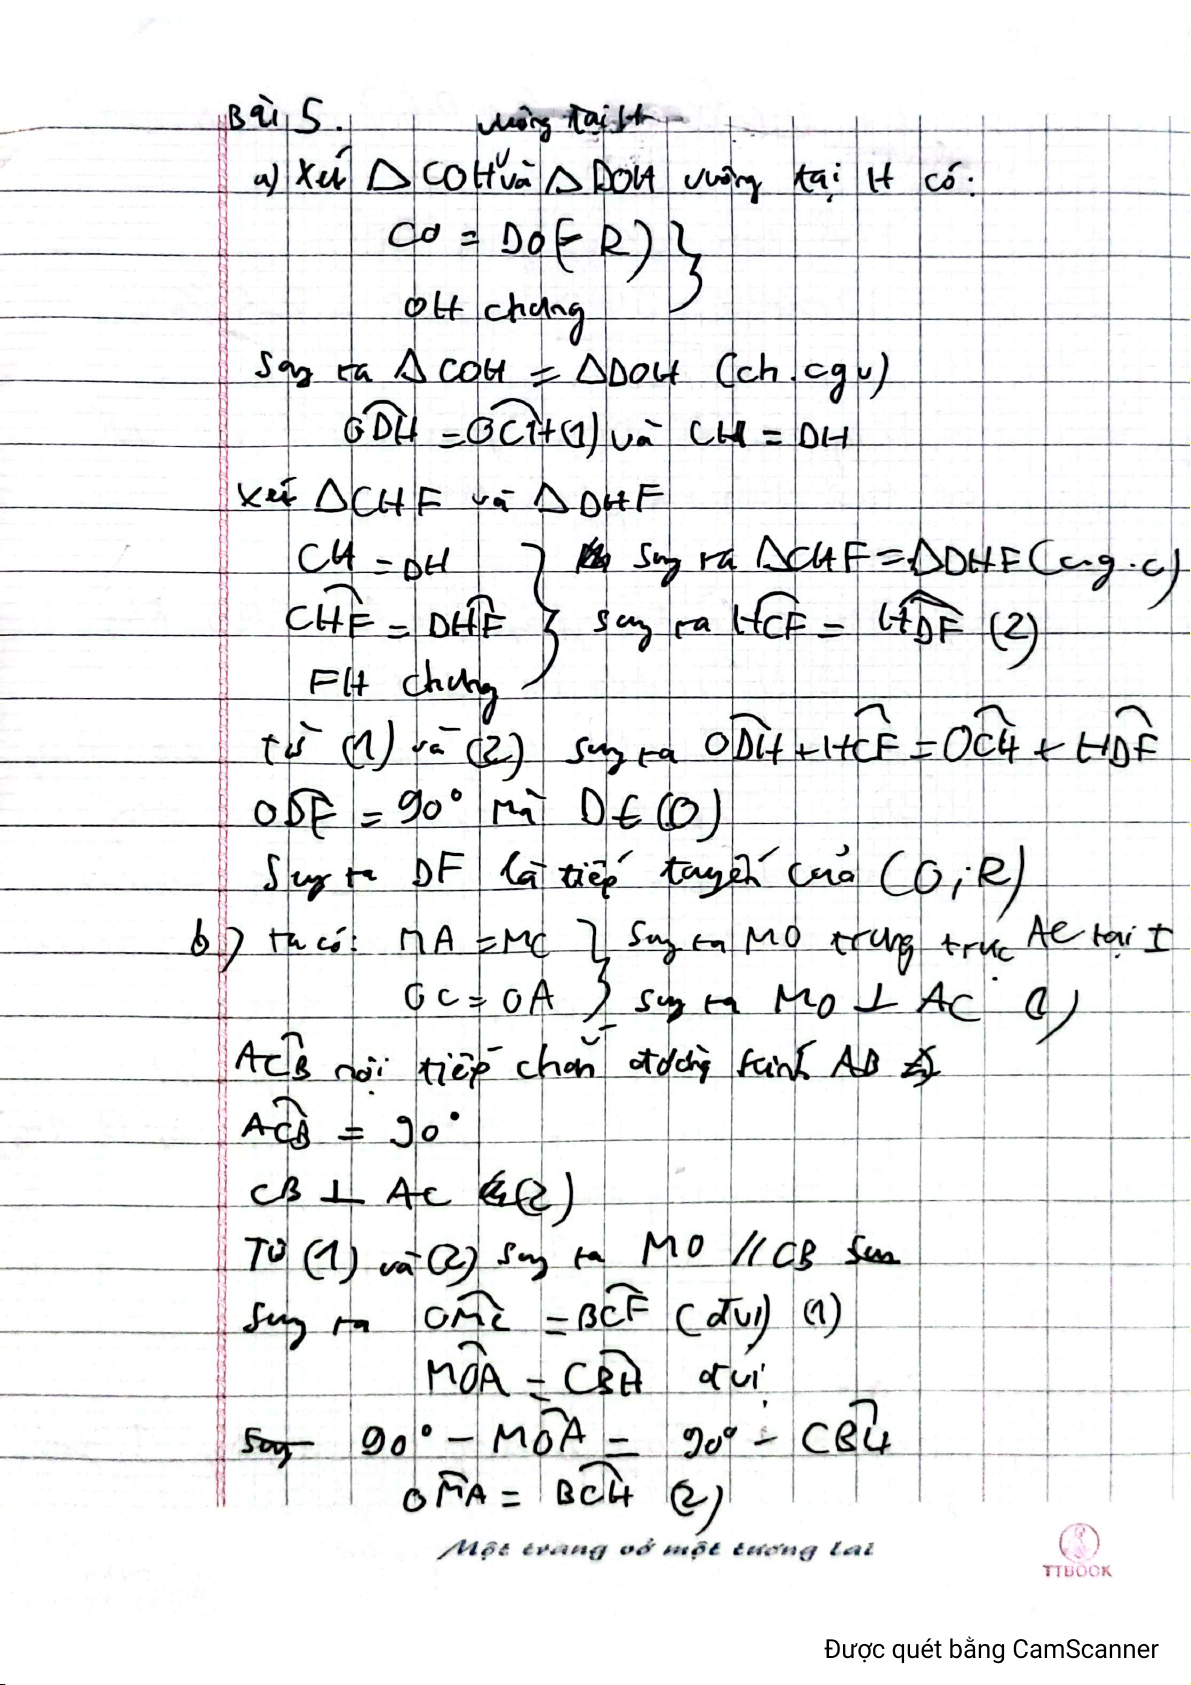 Bài 5.
vuông tại H
a) Xét △COH và △DOH vuông tại H có:
CO = DO (= R)
OH chung
Suy ra △COH = △DOH (ch.cgv)
ODH = OCH (1) và CH = DH
Xét △CHF và △DHF
CH = DH
suy ra △CHF = △DHF (c.g.c)
CHF = DHF
suy ra HCF = HDF (2)
FH chung
từ (1) và (2) suy ra ODH + HCF = OCH + HDF
ODF = 90° mà D ∈ (O)
Suy ra DF là tiếp tuyến của (O; R)
b) ta có: MA = MC } suy ra MO trung trực AC tại I
OC = OA } suy ra MO ⊥ AC (1)
ACB nội tiếp chắn đường kính AB
ACB = 90°
CB ⊥ AC (2)
Từ (1) và (2) suy ra MO // CB
suy ra OMC = BCF (đvị) (1)
MOA = CBH đvị
90° - MOA = 90° - CBH
OMA = BCH (2)
Một trang vở một tương lai
TTBOOK
Được quét bằng CamScanner